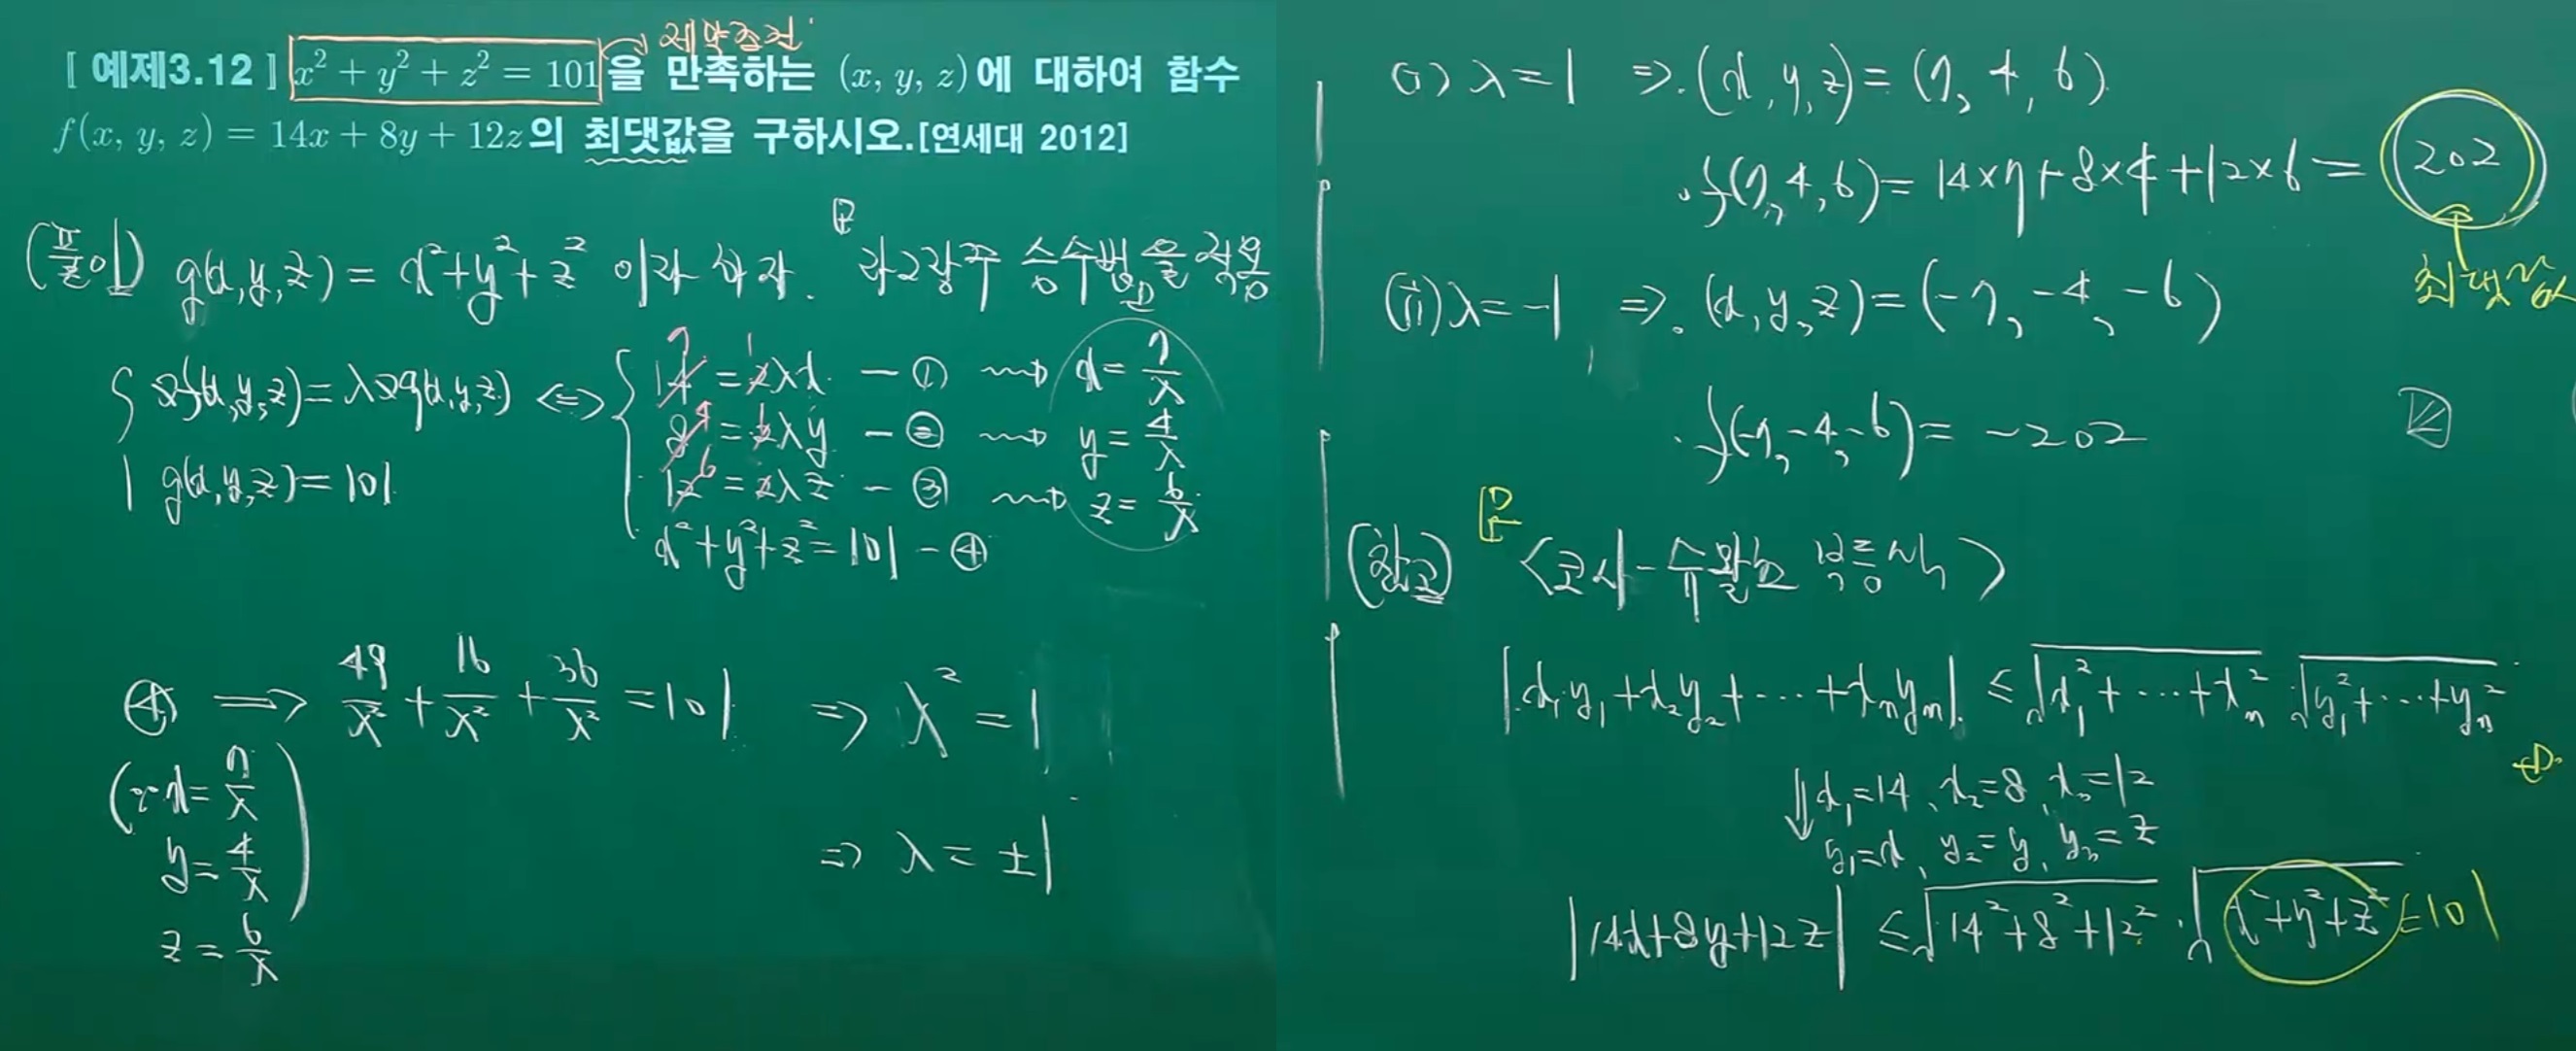 제약조건
[ 예제3.12 ] x² + y² + z² = 101을 만족하는 (x, y, z)에 대하여 함수
f(x, y, z) = 14x + 8y + 12z의 최댓값을 구하시오.[연세대 2012]
(풀이) g(x,y,z) = x²+y²+z² 이라 하자. 라그랑주 승수법을 적용
{ ∇f(x,y,z) = λ∇g(x,y,z) ⇔ { 14 = 2λx - ① ⇝ x = 7/λ
7 1
8 = 2λy - ② ⇝ y = 4/λ
4 1
g(x,y,z) = 101 12 = 2λz - ③ ⇝ z = 6/λ
6
x²+y²+z² = 101 - ④
④ ⟹ 49/λ² + 16/λ² + 36/λ² = 101 ⇒ λ² = 1
(∵ x = 7/λ
y = 4/λ ⇒ λ = ±1
z = 6/λ )
(i) λ = 1 ⇒ (x, y, z) = (7, 4, 6)
f(7, 4, 6) = 14×7+8×4+12×6 = 202
최댓값
(ii) λ = -1 ⇒ (x, y, z) = (-7, -4, -6)
f(-7, -4, -6) = -202
(참고) <코시-슈왈츠 부등식>
|x₁y₁ + x₂y₂ + ⋯ + xₙyₙ| ≤ √(x₁² + ⋯ + xₙ²) · √(y₁² + ⋯ + yₙ²)
⇓ x₁=14, x₂=8, x₃=12
y₁=x, y₂=y, y₃=z
|14x+8y+12z| ≤ √(14²+8²+12²) · √(x²+y²+z²) =101